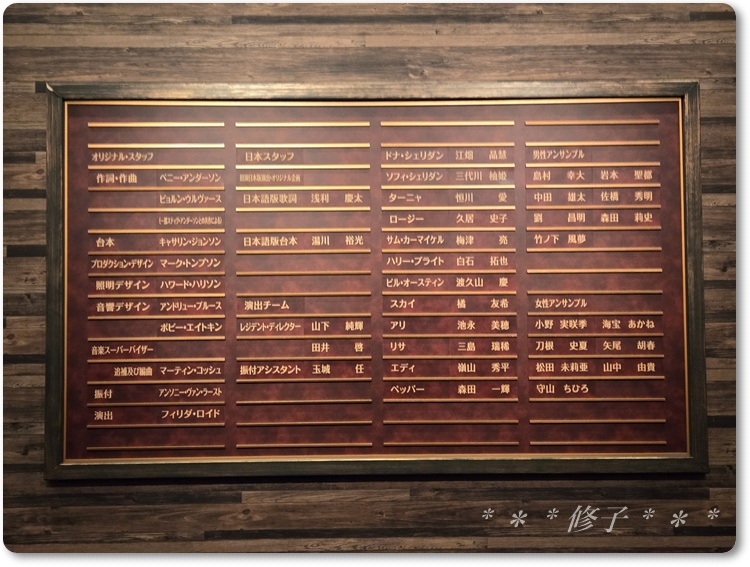 オリジナル・スタッフ
作詞・作曲 ベニー・アンダーソン
ビョルン・ウルヴァース
台本 キャサリン・ジョンソン
プロダクション・デザイン マーク・トンプソン
照明デザイン ハワード・ハリソン
音響デザイン アンドリュー・ブルース
ボビー・エイトキン
音楽スーパーバイザー
追補及び編曲 マーティン・コッシュ
振付 アンソニー・ヴァン・ラースト
演出 フィリダ・ロイド
日本スタッフ
日本語版歌詞 浅利 慶太
日本語版台本 湯川 裕光
演出チーム
レジデント・ディレクター 山下 純輝
田井 啓
振付アシスタント 玉城 任
ドナ・シェリダン 江畑 晶慧
ソフィ・シェリダン 三代川 柚姫
ターニャ 恒川 愛
ロージー 久居 史子
サム・カーマイケル 梅津 亮
ハリー・ブライト 白石 拓也
ビル・オースティン 渡久山 慶
スカイ 橘 友希
アリ 池永 美穂
リサ 三島 瑞稀
エディ 嶺山 秀平
ペッパー 森田 一輝
男性アンサンブル
島村 幸大 岩本 聖都
中田 雄太 佐橋 秀明
劉 昌明 森田 莉史
竹ノ下 風夢
女性アンサンブル
小野 実咲季 海宝 あかね
刀根 史夏 矢尾 胡春
松田 未莉亜 山中 由貴
守山 ちひろ
* * * 修子 * * *